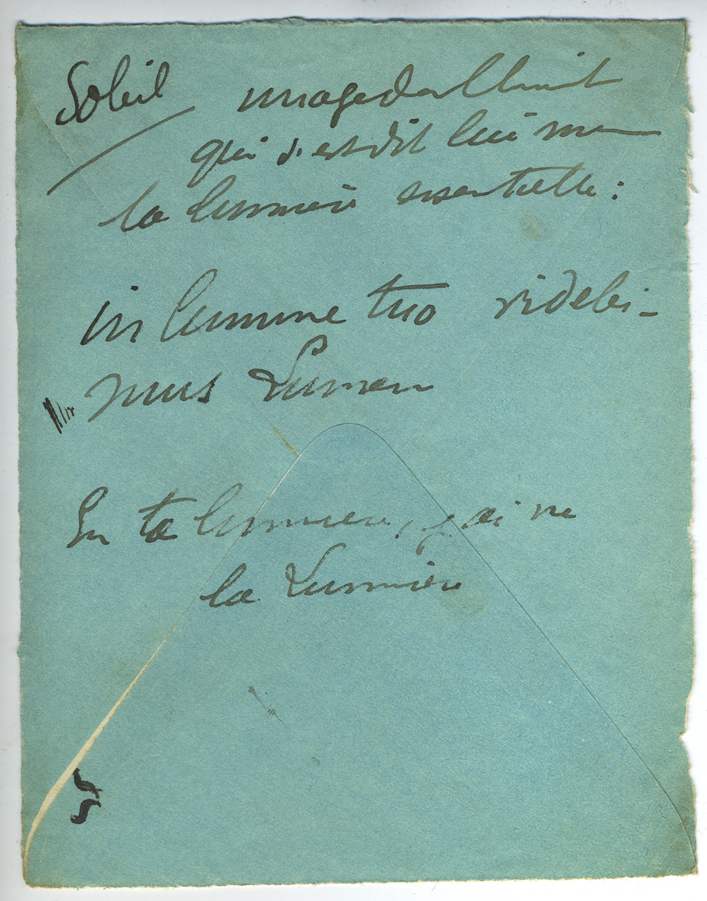 Soleil image de l'
qui s'est dit lui même
la lumière essentielle :
in lumine tuo videbi-
mus Lumen
En ta lumière, j'ai vu
la Lumière